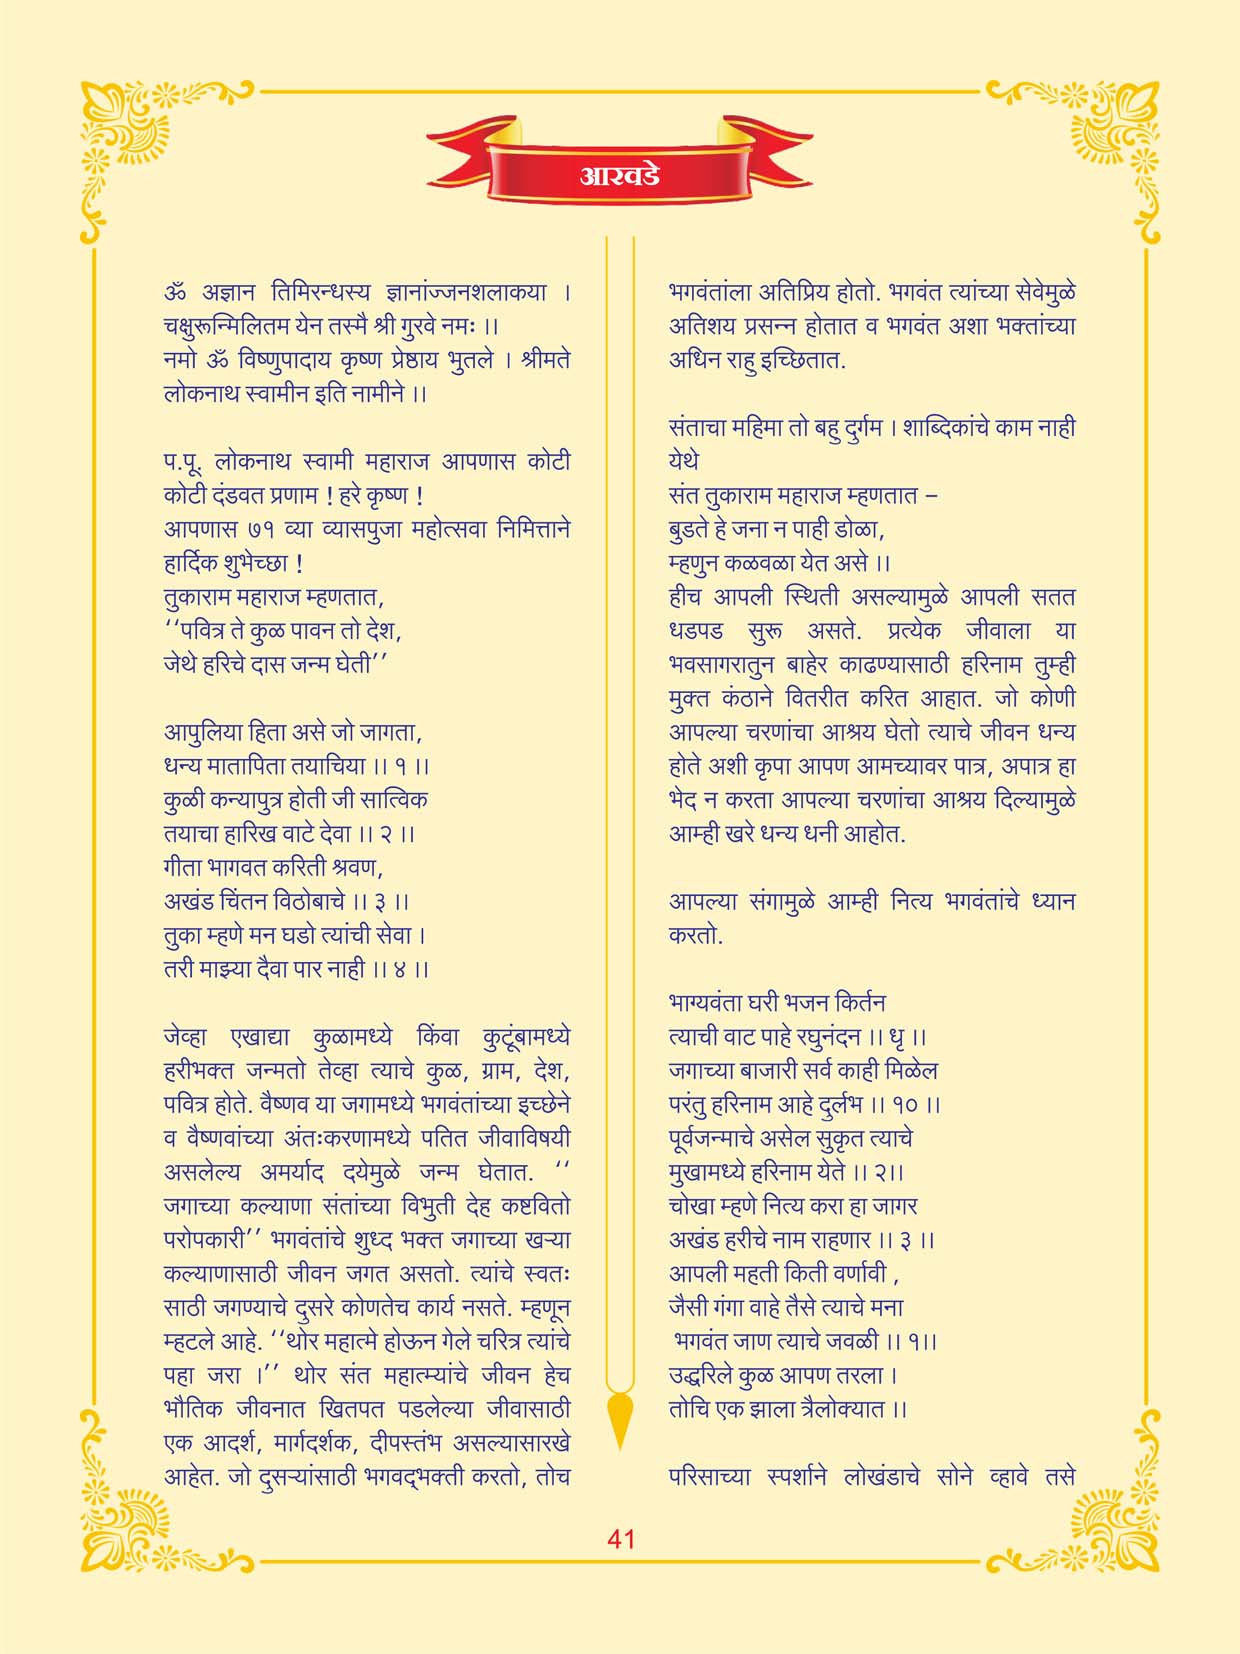 आरवडे
ॐ अज्ञान तिमिरन्धस्य ज्ञानांज्जनशलाकया ।
चक्षुरून्मिलितम येन तस्मै श्री गुरवे नमः ।।
नमो ॐ विष्णुपादाय कृष्ण प्रेष्ठाय भुतले । श्रीमते
लोकनाथ स्वामीन इति नामीने ।।
प.पू. लोकनाथ स्वामी महाराज आपणास कोटी
कोटी दंडवत प्रणाम ! हरे कृष्ण !
आपणास ७१ व्या व्यासपुजा महोत्सवा निमित्ताने
हार्दिक शुभेच्छा !
तुकाराम महाराज म्हणतात,
‘‘पवित्र ते कुळ पावन तो देश,
जेथे हरिचे दास जन्म घेती’’
आपुलिया हिता असे जो जागता,
धन्य मातापिता तयाचिया ।। १ ।।
कुळी कन्यापुत्र होती जी सात्विक
तयाचा हारिख वाटे देवा ।। २ ।।
गीता भागवत करिती श्रवण,
अखंड चिंतन विठोबाचे ।। ३ ।।
तुका म्हणे मन घडो त्यांची सेवा ।
तरी माझ्या दैवा पार नाही ।। ४ ।।
जेव्हा एखाद्या कुळामध्ये किंवा कुटूंबामध्ये
हरीभक्त जन्मतो तेव्हा त्याचे कुळ, ग्राम, देश,
पवित्र होते. वैष्णव या जगामध्ये भगवंतांच्या इच्छेने
व वैष्णवांच्या अंतःकरणामध्ये पतित जीवाविषयी
असलेल्य अमर्याद दयेमुळे जन्म घेतात. ‘‘
जगाच्या कल्याणा संतांच्या विभुती देह कष्टवितो
परोपकारी’’ भगवंतांचे शुध्द भक्त जगाच्या खऱ्या
कल्याणासाठी जीवन जगत असतो. त्यांचे स्वतः
साठी जगण्याचे दुसरे कोणतेच कार्य नसते. म्हणून
म्हटले आहे. ‘‘थोर महात्मे होऊन गेले चरित्र त्यांचे
पहा जरा ।’’ थोर संत महात्म्यांचे जीवन हेच
भौतिक जीवनात खितपत पडलेल्या जीवासाठी
एक आदर्श, मार्गदर्शक, दीपस्तंभ असल्यासारखे
आहेत. जो दुसऱ्यांसाठी भगवद्‌भक्ती करतो, तोच
भगवंतांला अतिप्रिय होतो. भगवंत त्यांच्या सेवेमुळे
अतिशय प्रसन्न होतात व भगवंत अशा भक्तांच्या
अधिन राहु इच्छितात.
संताचा महिमा तो बहु दुर्गम । शाब्दिकांचे काम नाही
येथे
संत तुकाराम महाराज म्हणतात –
बुडते हे जना न पाही डोळा,
म्हणुन कळवळा येत असे ।।
हीच आपली स्थिती असल्यामुळे आपली सतत
धडपड सुरू असते. प्रत्येक जीवाला या
भवसागरातुन बाहेर काढण्यासाठी हरिनाम तुम्ही
मुक्त कंठाने वितरीत करित आहात. जो कोणी
आपल्या चरणांचा आश्रय घेतो त्याचे जीवन धन्य
होते अशी कृपा आपण आमच्यावर पात्र, अपात्र हा
भेद न करता आपल्या चरणांचा आश्रय दिल्यामुळे
आम्ही खरे धन्य धनी आहोत.
आपल्या संगामुळे आम्ही नित्य भगवंतांचे ध्यान
करतो.
भाग्यवंता घरी भजन किर्तन
त्याची वाट पाहे रघुनंदन ।। धृ ।।
जगाच्या बाजारी सर्व काही मिळेल
परंतु हरिनाम आहे दुर्लभ ।। १० ।।
पूर्वजन्माचे असेल सुकृत त्याचे
मुखामध्ये हरिनाम येते ।। २।।
चोखा म्हणे नित्य करा हा जागर
अखंड हरीचे नाम राहणार ।। ३ ।।
आपली महती किती वर्णावी ,
जैसी गंगा वाहे तैसे त्याचे मना
भगवंत जाण त्याचे जवळी ।। १।।
उद्धरिले कुळ आपण तरला ।
तोचि एक झाला त्रैलोक्यात ।।
परिसाच्या स्पर्शाने लोखंडाचे सोने व्हावे तसे
41